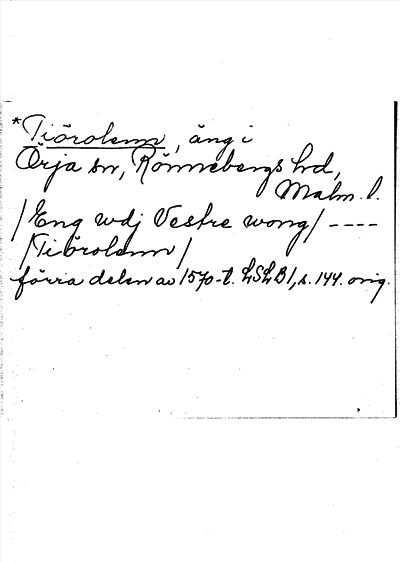 *Tiörolenn, äng i
Örja sn, Rönnebergs hd,
Malm. l.
/Eng wdj Vestre wong/ ----
/Tiörolenn/
förra delen av 1570-t. LSLB1, s. 144. orig.